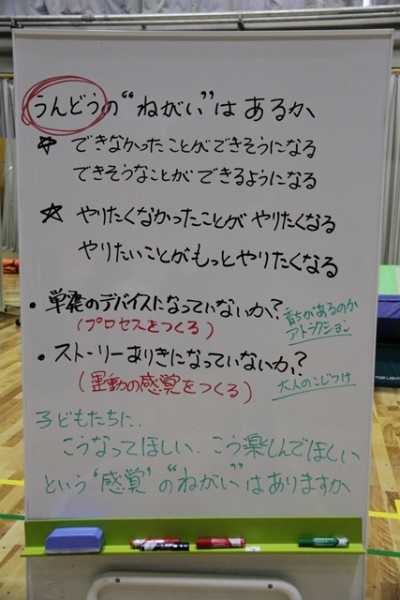 うんどうの"ねがい"はあるか、
☆ できなかったことができそうになる
できそうなことができるようになる
☆ やりたくなかったことがやりたくなる
やりたいことがもっとやりたくなる
・単発のデバイスになっていないか?
(プロセスをつくる)
育ちがあるのか
アトラクション
・ストーリーありきになっていないか?
(運動の感覚をつくる)
大人のこじつけ
子どもたちに、
こうなってほしい、こう楽しんでほしい
という"感覚"の"ねがい"はありますか